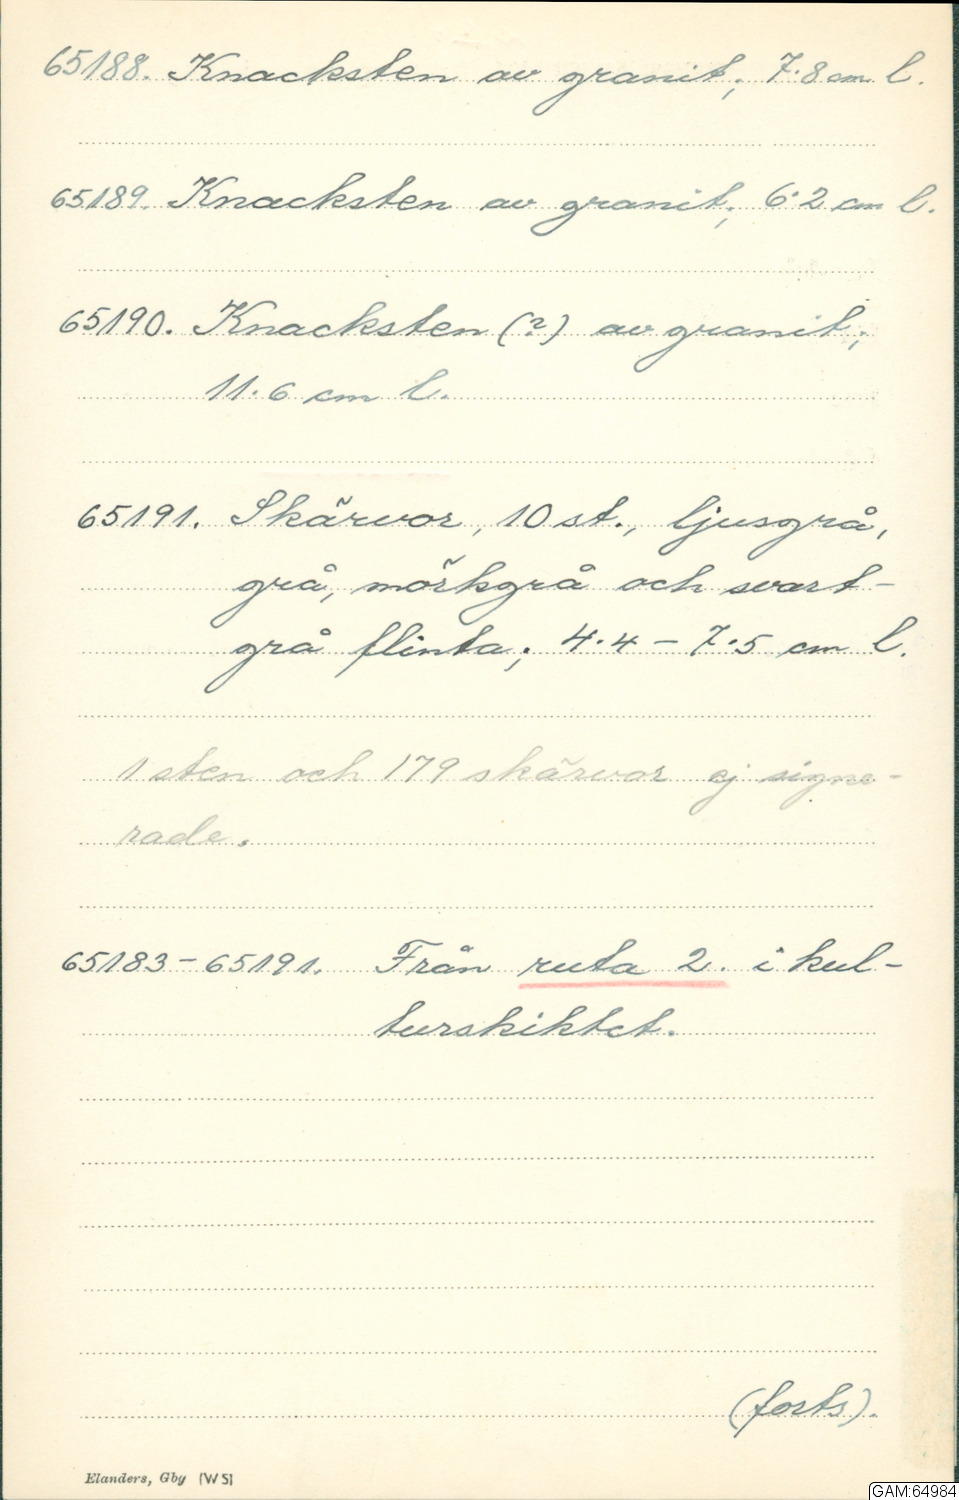 65188. Knacksten av granit; 7.8 cm l.
65189. Knacksten av granit; 6.2 cm l.
65190. Knacksten (?) av granit;
11.6 cm l.
65191. Skärvor, 10 st., ljusgrå,
grå, mörkgrå och svart-
grå flinta; 4.4 – 7.5 cm l.
1 sten och 179 skärvor ej signe-
rade.
65183 – 65191. Från ruta 2. i kul-
turskiktet.
(forts).
Elanders, Gby (W S)
GAM:64984